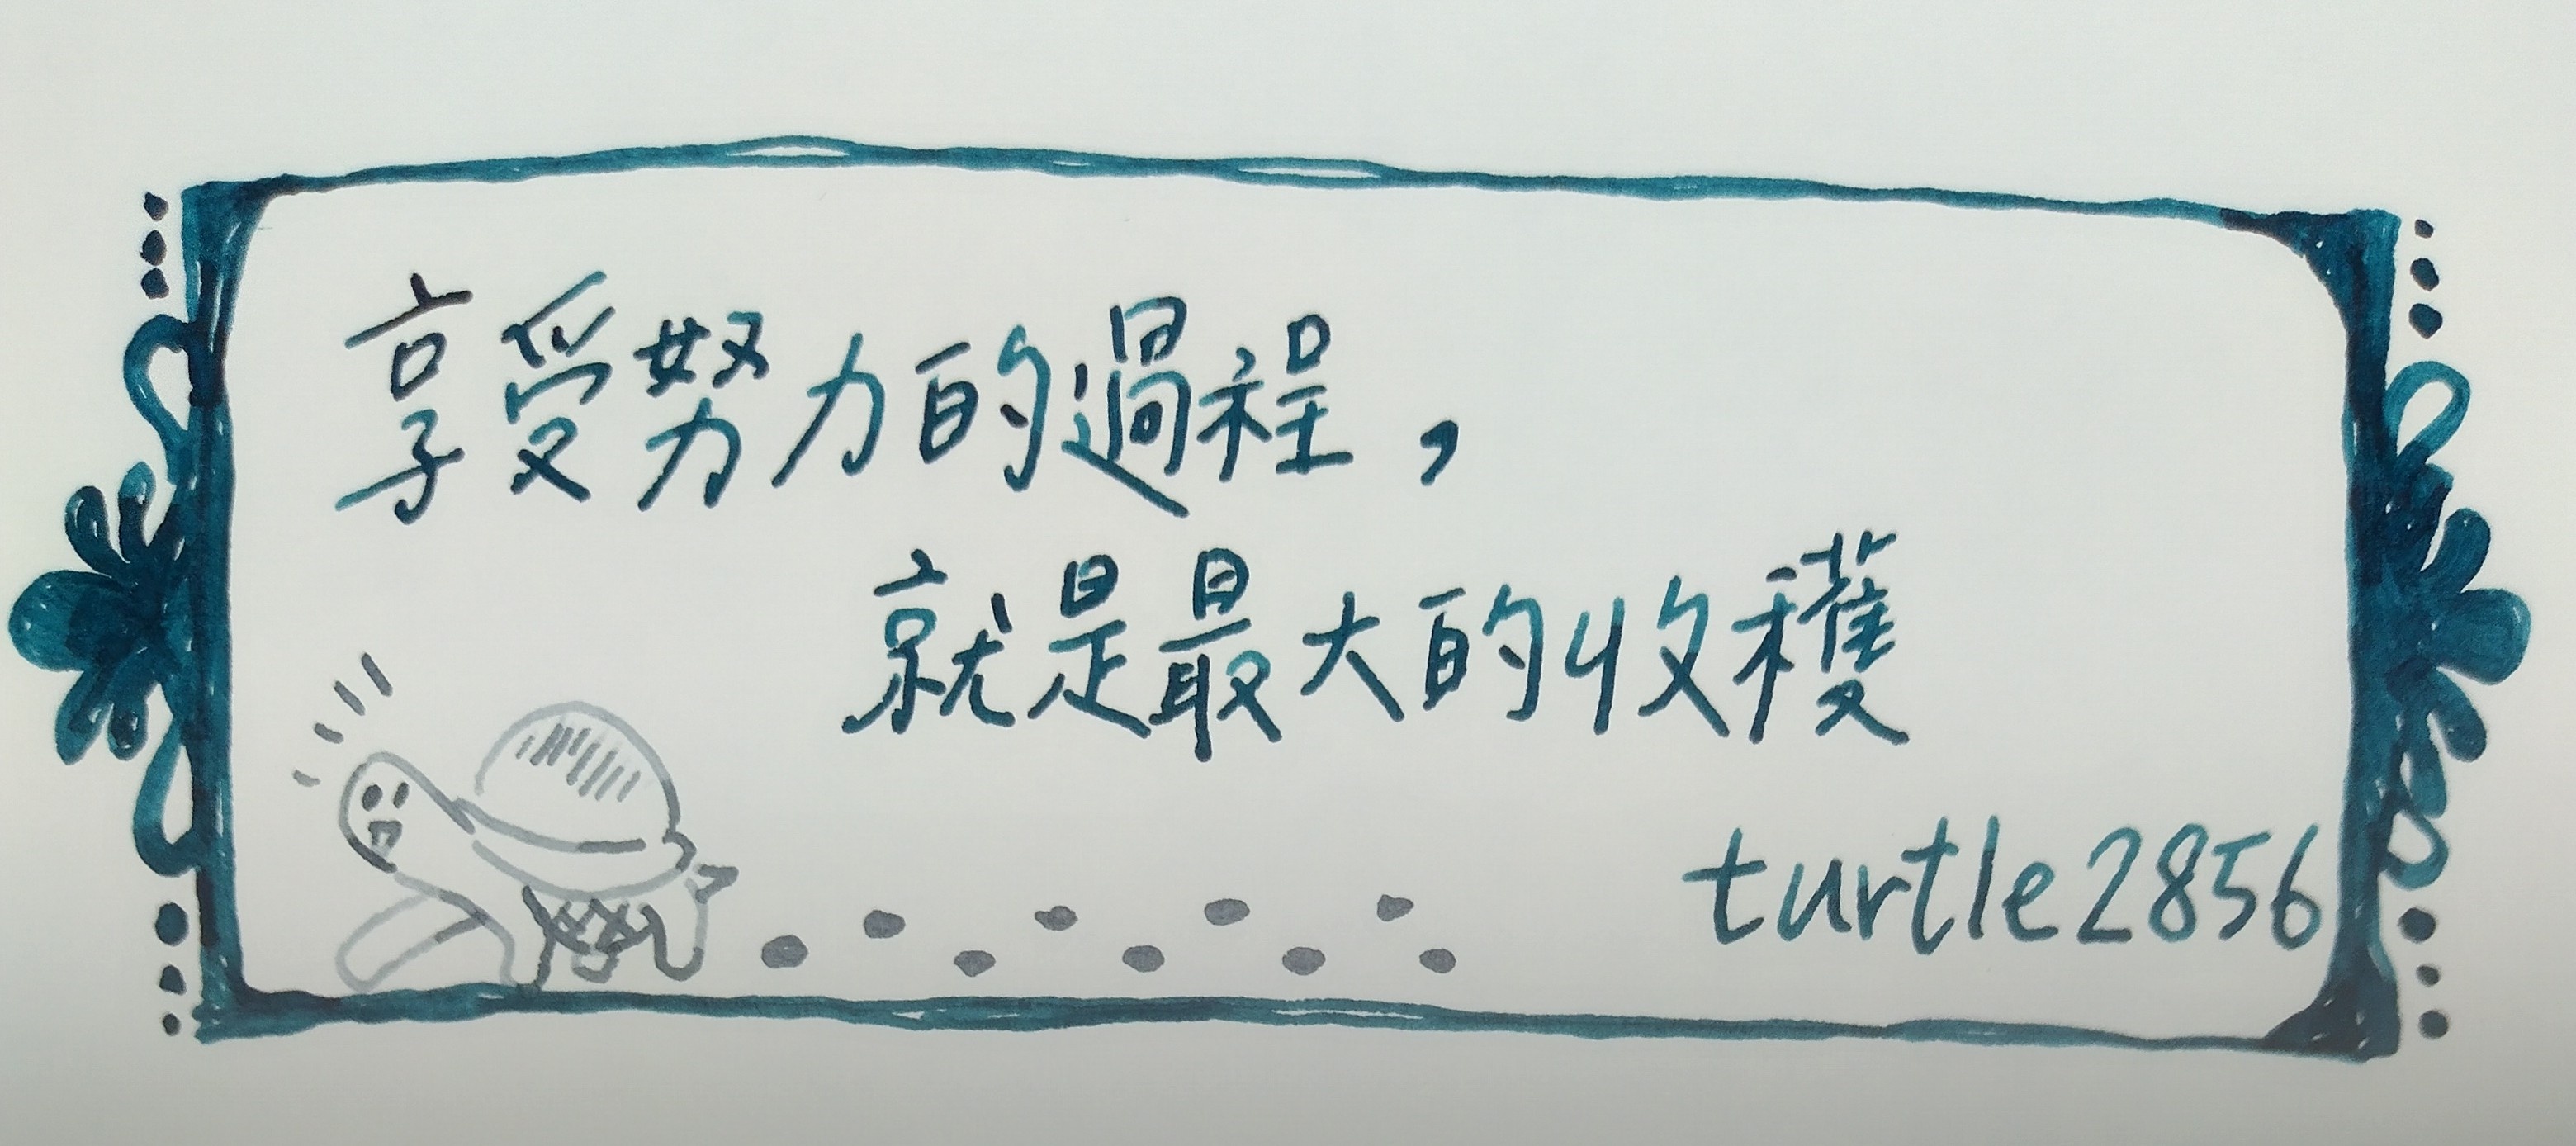 享受努力的過程，
就是最大的收穫
turtle2856